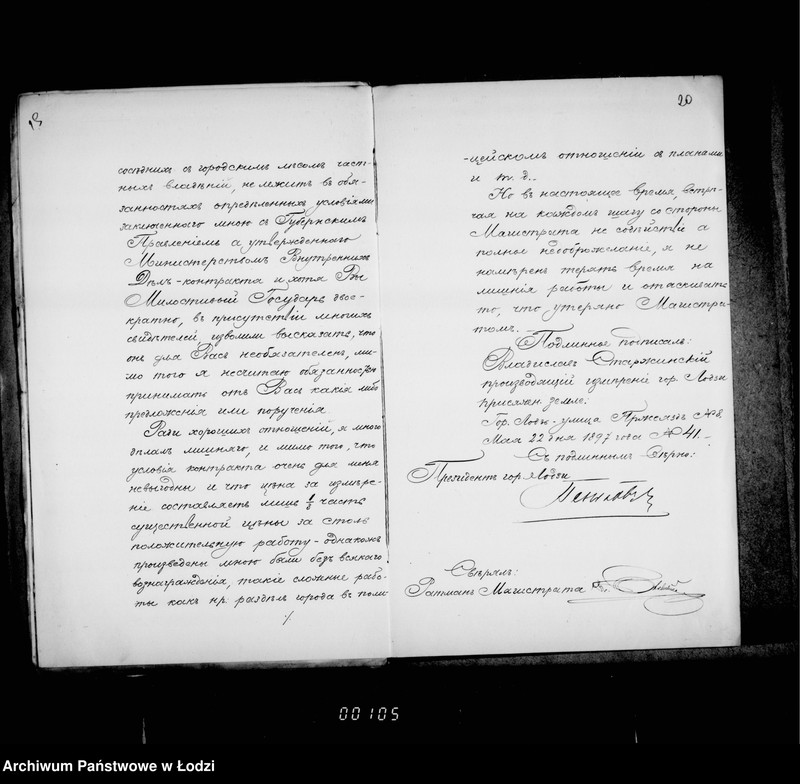 сосѣднихъ съ городскимъ лѣсомъ част-
ныхъ владѣній, не лежитъ въ обя-
занностяхъ опредѣленныхъ условіями
заключеннаго мною съ Губернскимъ
Правленіемъ а утвержденнаго
Министерствомъ Внутреннихъ
Дѣлъ - контракта и хотя Вы
Милостивый Государь двое-
кратно, въ присутствіи многихъ
свидѣтелей, изволили высказать, что
онъ для Васъ необязателенъ, ми-
мо того я несчитаю обязанностью
принимать отъ Васъ какія либо
предложенія или порученія
Ради хорошихъ отношеній, я много
дѣлалъ лишняго, и мимо того, что
условія контракта очень для меня
невыгодны и что цѣна за измѣре-
ніе составляетъ лишь часть
существенной цѣны за столь
положительную работу - однакожъ
произведены мною были безъ всякаго
вознагражденія, такіе сложные рабо-
ты какъ нр. раздѣлъ города въ поли-
20
-цейскомъ отношеніи съ планами
и т. д..
Но въ настоящее время, встрѣ-
чая на каждомъ шагу со стороны
Магистрата не содѣйствіе а
полное необряжаніе, я не
намѣренъ терять время на
лишнія работы и отыскивать
то, что утеряно Магистра-
томъ. -
Подлинное подписалъ:
Владиславъ Старжинскій
производящій измѣреніе гор. Лодзи
присяжн. землем.
Гор. Лодзь - улица Пржеяздъ № 8.
Мая 22 дня 1897 года № 41. -
Съ подлиннымъ вѣрно:
Президентъ гор. Лодзи
Пеньковскій
Свѣрялъ:
Ратманъ Магистрата
00105
Archiwum Państwowe w Łodzi